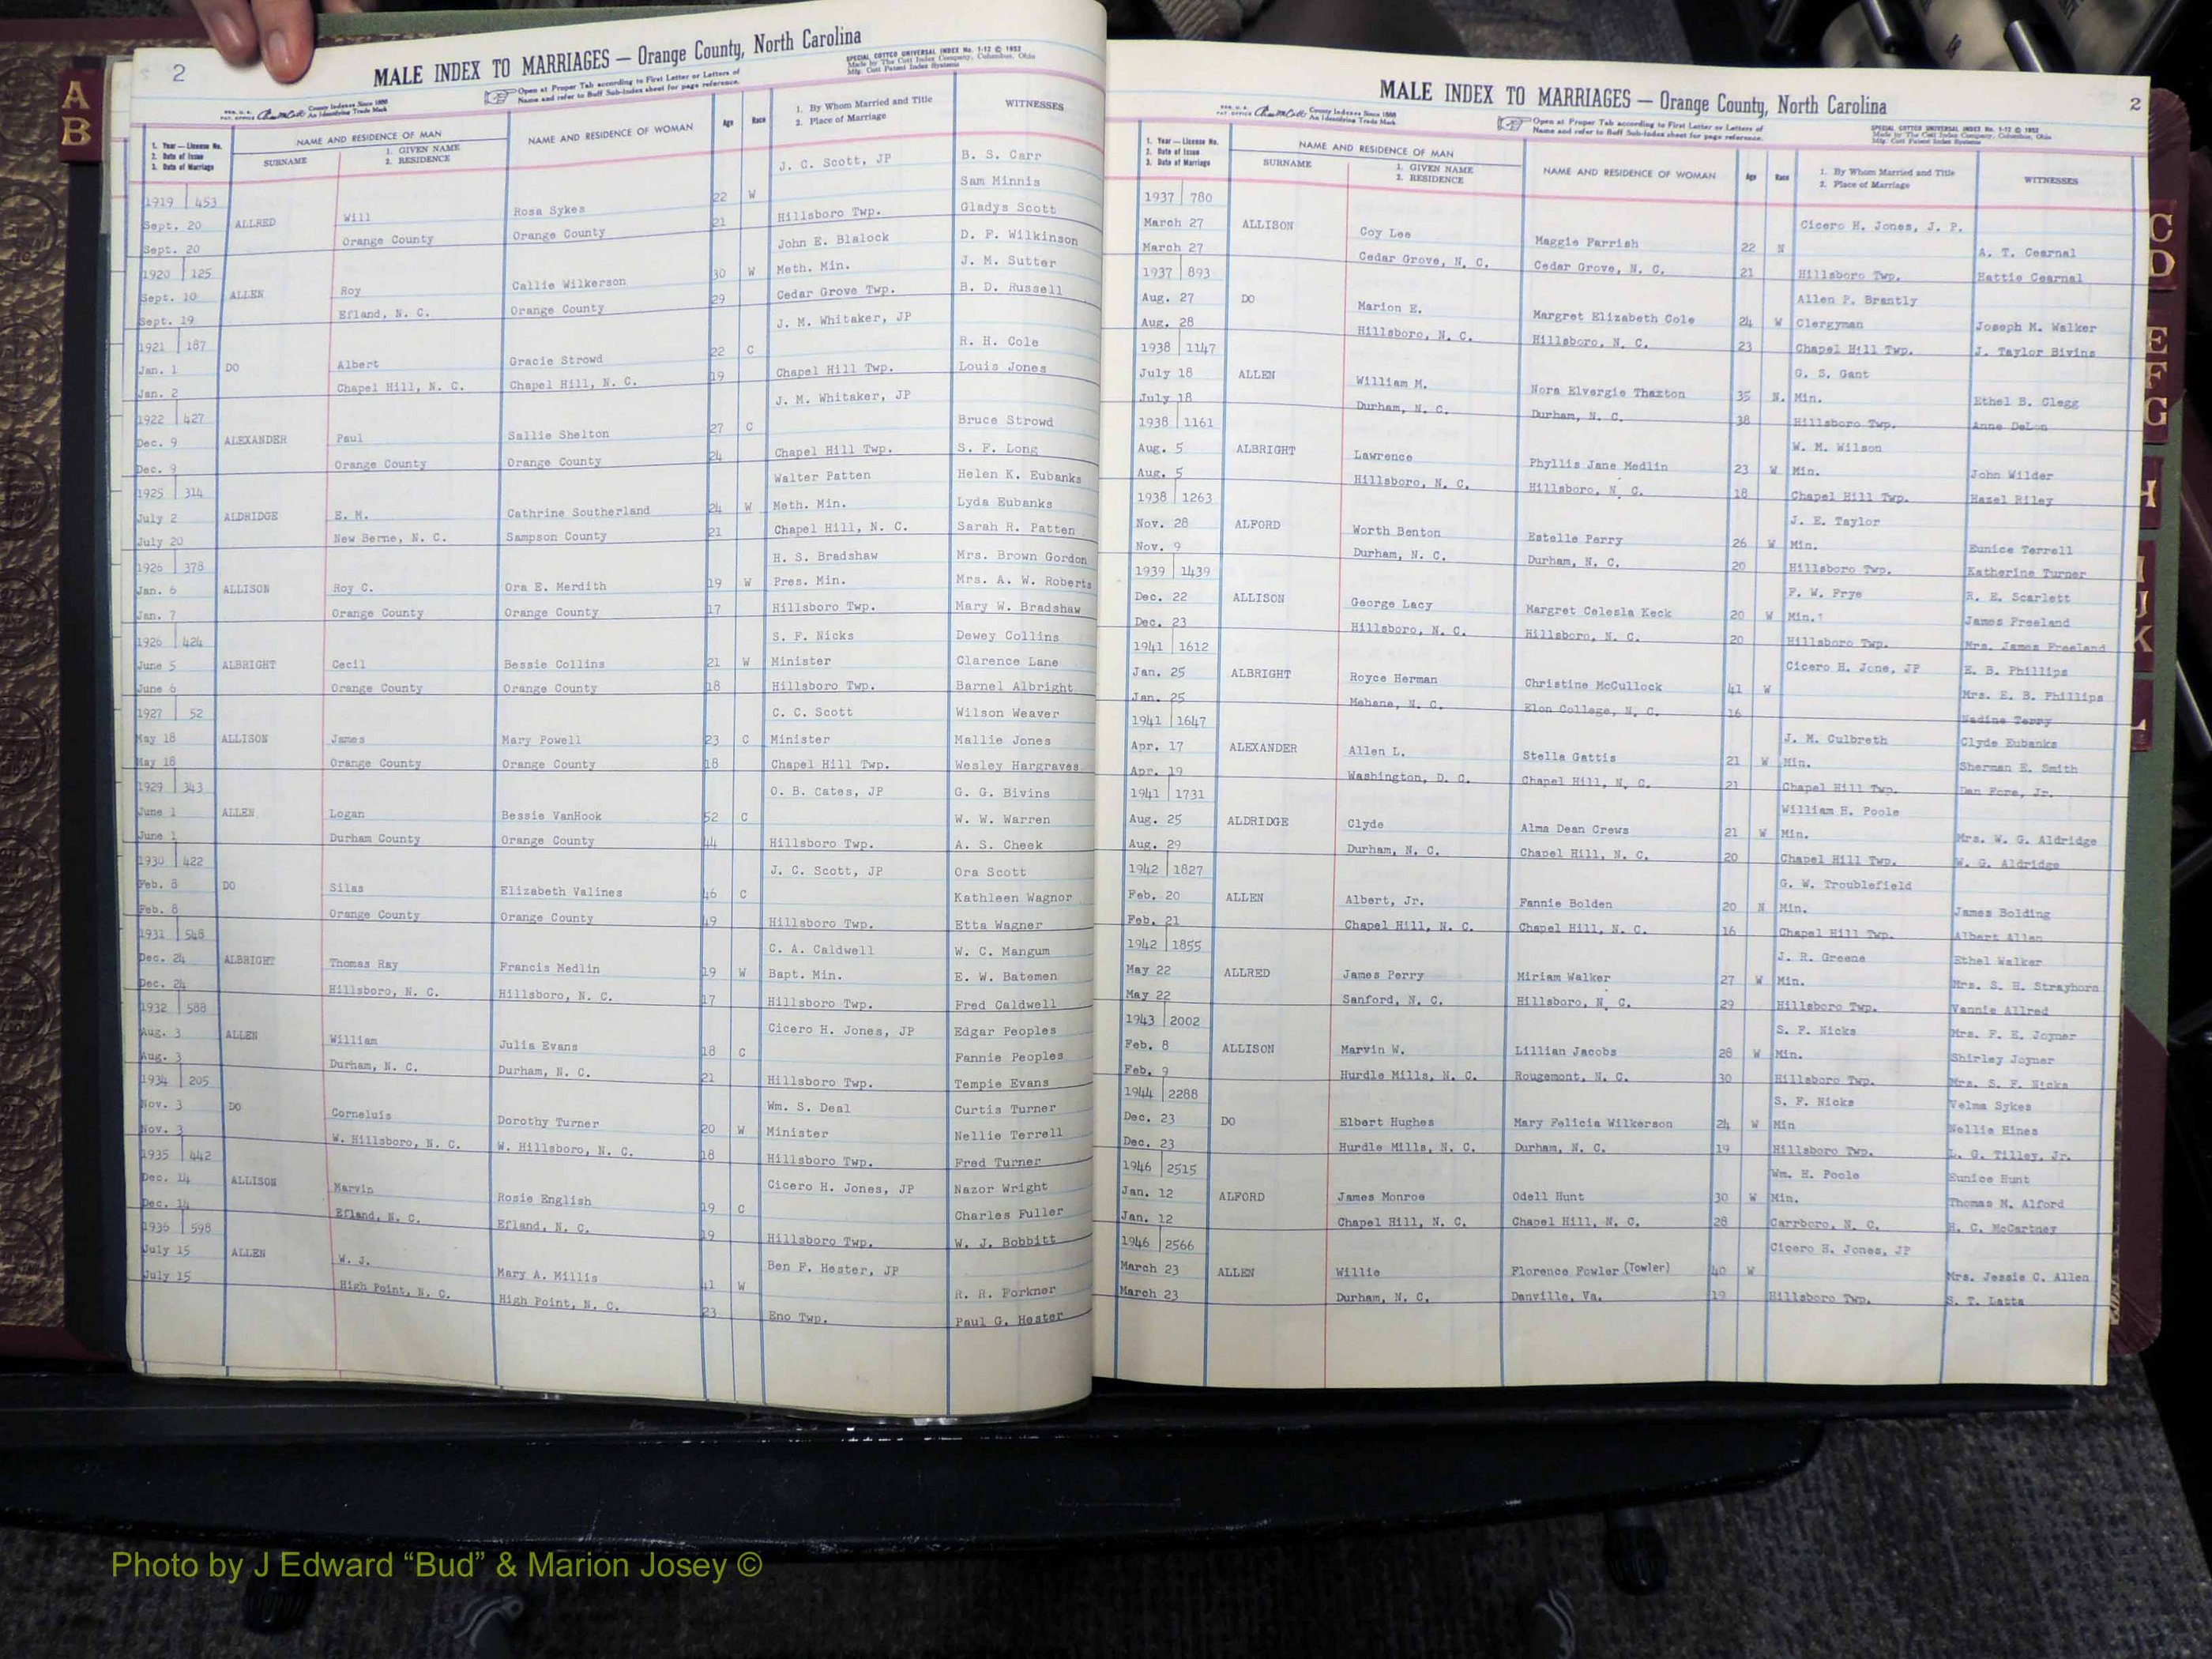 A
B
2
MALE INDEX TO MARRIAGES — Orange County, North Carolina
SPECIAL COTTCO UNIVERSAL INDEX No. 1-12 © 1952
Made by The Cott Index Company, Columbus, Ohio
Mfg. Cott Patent Index Systems
County Indexes Since 1888
An Identifying Trade Mark
Open at Proper Tab according to First Letter or Letters of
Name and refer to Buff Sub-Index sheet for page reference.
1. Year — License No.
2. Date of Issue
3. Date of Marriage
NAME AND RESIDENCE OF MAN
SURNAME
1. GIVEN NAME
2. RESIDENCE
NAME AND RESIDENCE OF WOMAN
Age
Race
1. By Whom Married and Title
2. Place of Marriage
WITNESSES
J. C. Scott, JP B. S. Carr
1919 453 22 W Sam Minnis
Sept. 20 ALLRED Will Rosa Sykes 21 Hillsboro Twp. Gladys Scott
Sept. 20 Orange County Orange County John E. Blalock D. F. Wilkinson
1920 125 30 W Meth. Min. J. M. Sutter
Sept. 10 ALLEN Roy Callie Wilkerson 29 Cedar Grove Twp. B. D. Russell
Sept. 19 Efland, N. C. Orange County J. M. Whitaker, JP
1921 187 22 C R. H. Cole
Jan. 1 DO Albert Gracie Strowd 19 Chapel Hill Twp. Louis Jones
Jan. 2 Chapel Hill, N. C. Chapel Hill, N. C. J. M. Whitaker, JP
1922 427 27 C Bruce Strowd
Dec. 9 ALEXANDER Paul Sallie Shelton 24 Chapel Hill Twp. S. F. Long
Dec. 9 Orange County Orange County Walter Patten Helen K. Eubanks
1925 314 24 W Meth. Min. Lyda Eubanks
July 2 ALDRIDGE E. M. Cathrine Southerland 21 Chapel Hill, N. C. Sarah R. Patten
July 20 New Berne, N. C. Sampson County H. S. Bradshaw Mrs. Brown Gordon
1926 378 19 W Pres. Min. Mrs. A. W. Roberts
Jan. 6 ALLISON Roy C. Ora E. Merdith 17 Hillsboro Twp. Mary W. Bradshaw
Jan. 7 Orange County Orange County S. F. Nicks Dewey Collins
1926 424 21 W Minister Clarence Lane
June 5 ALBRIGHT Cecil Bessie Collins 18 Hillsboro Twp. Barnel Albright
June 6 Orange County Orange County C. C. Scott Wilson Weaver
1927 52 23 C Minister Mallie Jones
May 18 ALLISON James Mary Powell 18 Chapel Hill Twp. Wesley Hargraves
May 18 Orange County Orange County O. B. Cates, JP G. G. Bivins
1929 343 52 C W. W. Warren
June 1 ALLEN Logan Bessie VanHook 44 Hillsboro Twp. A. S. Cheek
June 1 Durham County Orange County J. C. Scott, JP Ora Scott
1930 422 46 C Kathleen Wagnor
Feb. 8 DO Silas Elizabeth Valines 49 Hillsboro Twp. Etta Wagner
Feb. 8 Orange County Orange County C. A. Caldwell W. C. Mangum
1931 548 19 W Bapt. Min. E. W. Batemen
Dec. 24 ALBRIGHT Thomas Ray Francis Medlin 17 Hillsboro Twp. Fred Caldwell
Dec. 24 Hillsboro, N. C. Hillsboro, N. C. Cicero H. Jones, JP Edgar Peoples
1932 588 18 C Fannie Peoples
Aug. 3 ALLEN William Julia Evans 21 Hillsboro Twp. Tempie Evans
Aug. 3 Durham, N. C. Durham, N. C. Wm. S. Deal Curtis Turner
1934 205 20 W Minister Nellie Terrell
Nov. 3 DO Corneluis Dorothy Turner 18 Hillsboro Twp. Fred Turner
Nov. 3 W. Hillsboro, N. C. W. Hillsboro, N. C. Cicero H. Jones, JP Nazor Wright
1935 442 19 C Charles Fuller
Dec. 14 ALLISON Marvin Rosie English 19 Hillsboro Twp. W. J. Bobbitt
Dec. 14 Efland, N. C. Efland, N. C. Ben F. Hester, JP
1936 598 41 W R. R. Forkner
July 15 ALLEN W. J. Mary A. Millis 23 Eno Twp. Paul G. Hester
July 15 High Point, N. C. High Point, N. C.
MALE INDEX TO MARRIAGES — Orange County, North Carolina
2
County Indexes Since 1888
An Identifying Trade Mark
Open at Proper Tab according to First Letter or Letters of
Name and refer to Buff Sub-Index sheet for page reference.
SPECIAL COTTCO UNIVERSAL INDEX No. 1-12 © 1952
Made by The Cott Index Company, Columbus, Ohio
Mfg. Cott Patent Index Systems
1. Year — License No.
2. Date of Issue
3. Date of Marriage
NAME AND RESIDENCE OF MAN
SURNAME
1. GIVEN NAME
2. RESIDENCE
NAME AND RESIDENCE OF WOMAN
Age
Race
1. By Whom Married and Title
2. Place of Marriage
WITNESSES
1937 780 Cicero H. Jones, J. P.
March 27 ALLISON Coy Lee Maggie Parrish 22 N A. T. Cearnal
March 27 Cedar Grove, N. C. Cedar Grove, N. C. 21 Hillsboro Twp. Hattie Cearnal
1937 893 Allen P. Brantly
Aug. 27 DO Marion E. Margret Elizabeth Cole 24 W Clergyman Joseph M. Walker
Aug. 28 Hillsboro, N. C. Hillsboro, N. C. 23 Chapel Hill Twp. J. Taylor Bivins
1938 1147 G. S. Gant
July 18 ALLEN William M. Nora Elvergie Thaxton 35 N. Min. Ethel B. Clegg
July 18 Durham, N. C. Durham, N. C. 38 Hillsboro Twp. Anne
1938 1161 W. M. Wilson
Aug. 5 ALBRIGHT Lawrence Phyllis Jane Medlin 23 W Min. John Wilder
Aug. 5 Hillsboro, N. C. Hillsboro, N. C. 18 Chapel Hill Twp. Hazel Riley
1938 1263 J. E. Taylor
Nov. 28 ALFORD Worth Benton Estelle Perry 26 W Min. Eunice Terrell
Nov. 9 Durham, N. C. Durham, N. C. 20 Hillsboro Twp. Katherine Turner
1939 1439 F. W. Frye R. E. Scarlett
Dec. 22 ALLISON George Lacy Margret Celesla Keck 20 W Min. James Freeland
Dec. 23 Hillsboro, N. C. Hillsboro, N. C. 20 Hillsboro Twp. Mrs. James Freeland
1941 1612 Cicero H. Jone, JP E. B. Phillips
Jan. 25 ALBRIGHT Royce Herman Christine McCullock 41 W Mrs. E. B. Phillips
Jan. 25 Mebane, N. C. Elon College, N. C. 16 Nadine Terry
1941 1647 J. M. Culbreth Clyde Eubanks
Apr. 17 ALEXANDER Allen L. Stella Gattis 21 W Min. Sherman E. Smith
Apr. 19 Washington, D. C. Chapel Hill, N. C. 21 Chapel Hill Twp. Dan Fore, Jr.
1941 1731 William H. Poole
Aug. 25 ALDRIDGE Clyde Alma Dean Crews 21 W Min. Mrs. W. G. Aldridge
Aug. 29 Durham, N. C. Chapel Hill, N. C. 20 Chapel Hill Twp. W. G. Aldridge
1942 1827 G. W. Troublefield
Feb. 20 ALLEN Albert, Jr. Fannie Bolden 20 N Min. James Bolding
Feb. 21 Chapel Hill, N. C. Chapel Hill, N. C. 16 Chapel Hill Twp. Albert Allen
1942 1855 J. R. Greene Ethel Walker
May 22 ALLRED James Perry Miriam Walker 27 W Min. Mrs. S. H. Strayhorn
May 22 Sanford, N. C. Hillsboro, N. C. 29 Hillsboro Twp. Vannie Allred
1943 2002 S. F. Nicks Mrs. F. E. Joyner
Feb. 8 ALLISON Marvin W. Lillian Jacobs 28 W Min. Shirley Joyner
Feb. 9 Hurdle Mills, N. C. Rougemont, N. C. 30 Hillsboro Twp. Mrs. S. F. Nicks
1944 2288 S. F. Nicks Velma Sykes
Dec. 23 DO Elbert Hughes Mary Felicia Wilkerson 24 W Min Nellie Hines
Dec. 23 Hurdle Mills, N. C. Durham, N. C. 19 Hillsboro Twp. L. G. Tilley, Jr.
1946 2515 Wm. H. Poole Eunice Hunt
Jan. 12 ALFORD James Monroe Odell Hunt 30 W Min. Thomas M. Alford
Jan. 12 Chapel Hill, N. C. Chapel Hill, N. C. 28 Carrboro, N. C. H. C. McCartney
1946 2566 Cicero H. Jones, JP
March 23 ALLEN Willie Florence Fowler (Towler) 40 W Mrs. Jessie C. Allen
March 23 Durham, N. C. Danville, Va. 19 Hillsboro Twp. S. T. Latta
Photo by J Edward “Bud” & Marion Josey ©